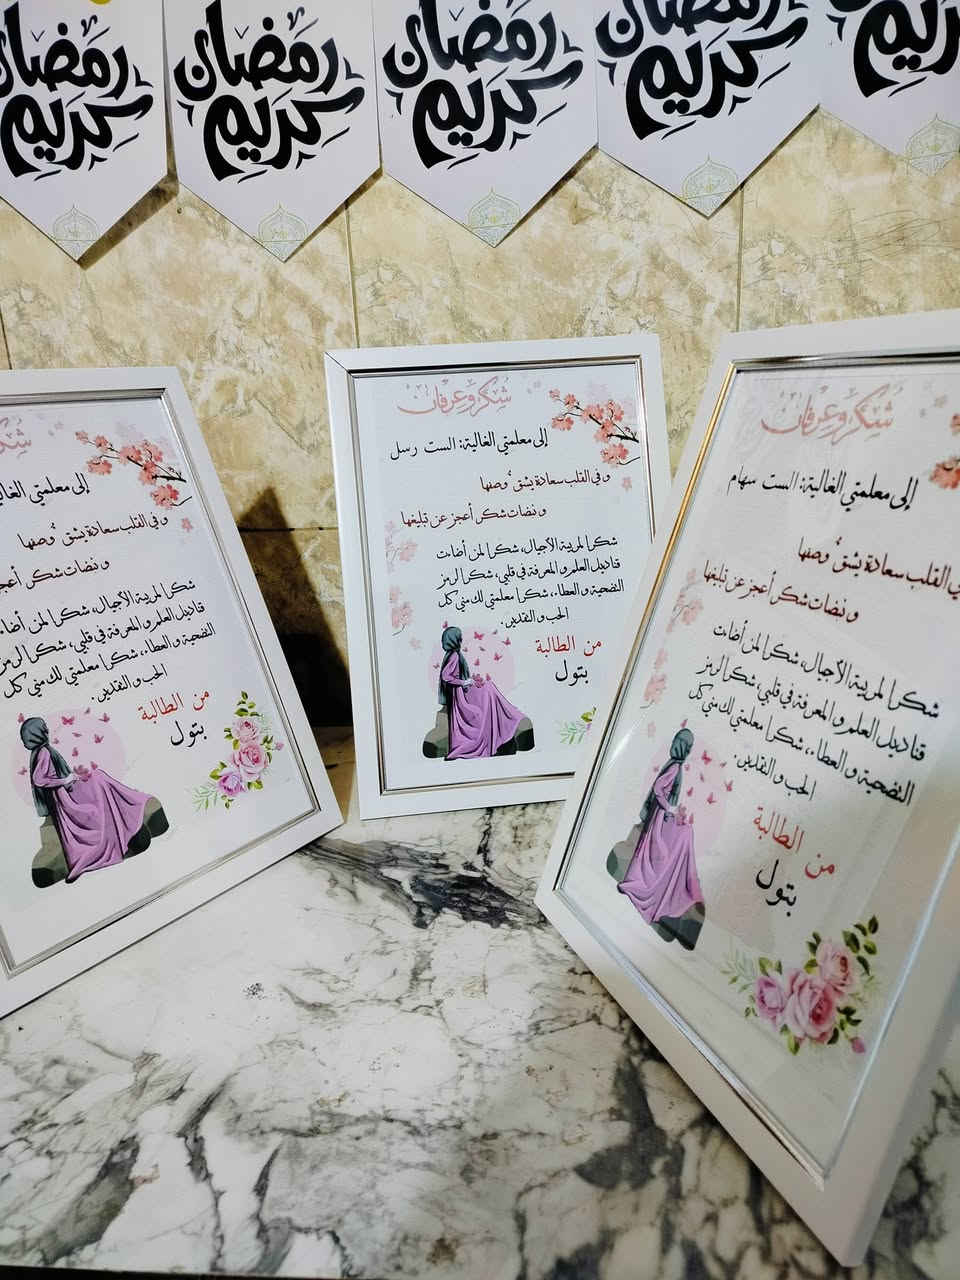 رمضان
كريم
رمضان
كريم
رمضان
كريم
رمضان
كريم
كريم
شكر وعرفان
إلى معلمتي الغالية: الست رسل
وفي القلب سعادة يشق وصفها
ونبضات شكر أعجز عن تبليغها
شكرا لمربية الأجيال، شكرا لمن أضاءت
قناديل العلم والمعرفة في قلبي، شكرا لرمز
التضحية والعطاء، شكرا معلمتي لك مني كل
الحب والتقدير.
من الطالبة
بتول
شكر وعرفان
إلى معلمتي الغالية: الست سهام
في القلب سعادة يشق وصفها
ونبضات شكر أعجز عن تبليغها
شكرا لمربية الأجيال، شكرا لمن أضاءت
قناديل العلم والمعرفة في قلبي، شكرا لرمز
التضحية والعطاء، شكرا معلمتي لك مني كل
الحب والتقدير.
من الطالبة
بتول
شكر
إلى معلمتي
وفي القلب سعادة يشق وصفها
ونبضات شكر
شكرا لمربية الأجيال، شكرا لمن أضاءت
قناديل العلم والمعرفة في قلبي، شكرا لرمز
التضحية والعطاء، شكرا معلمتي لك مني كل
الحب والتقدير.
من الطالبة
بتول